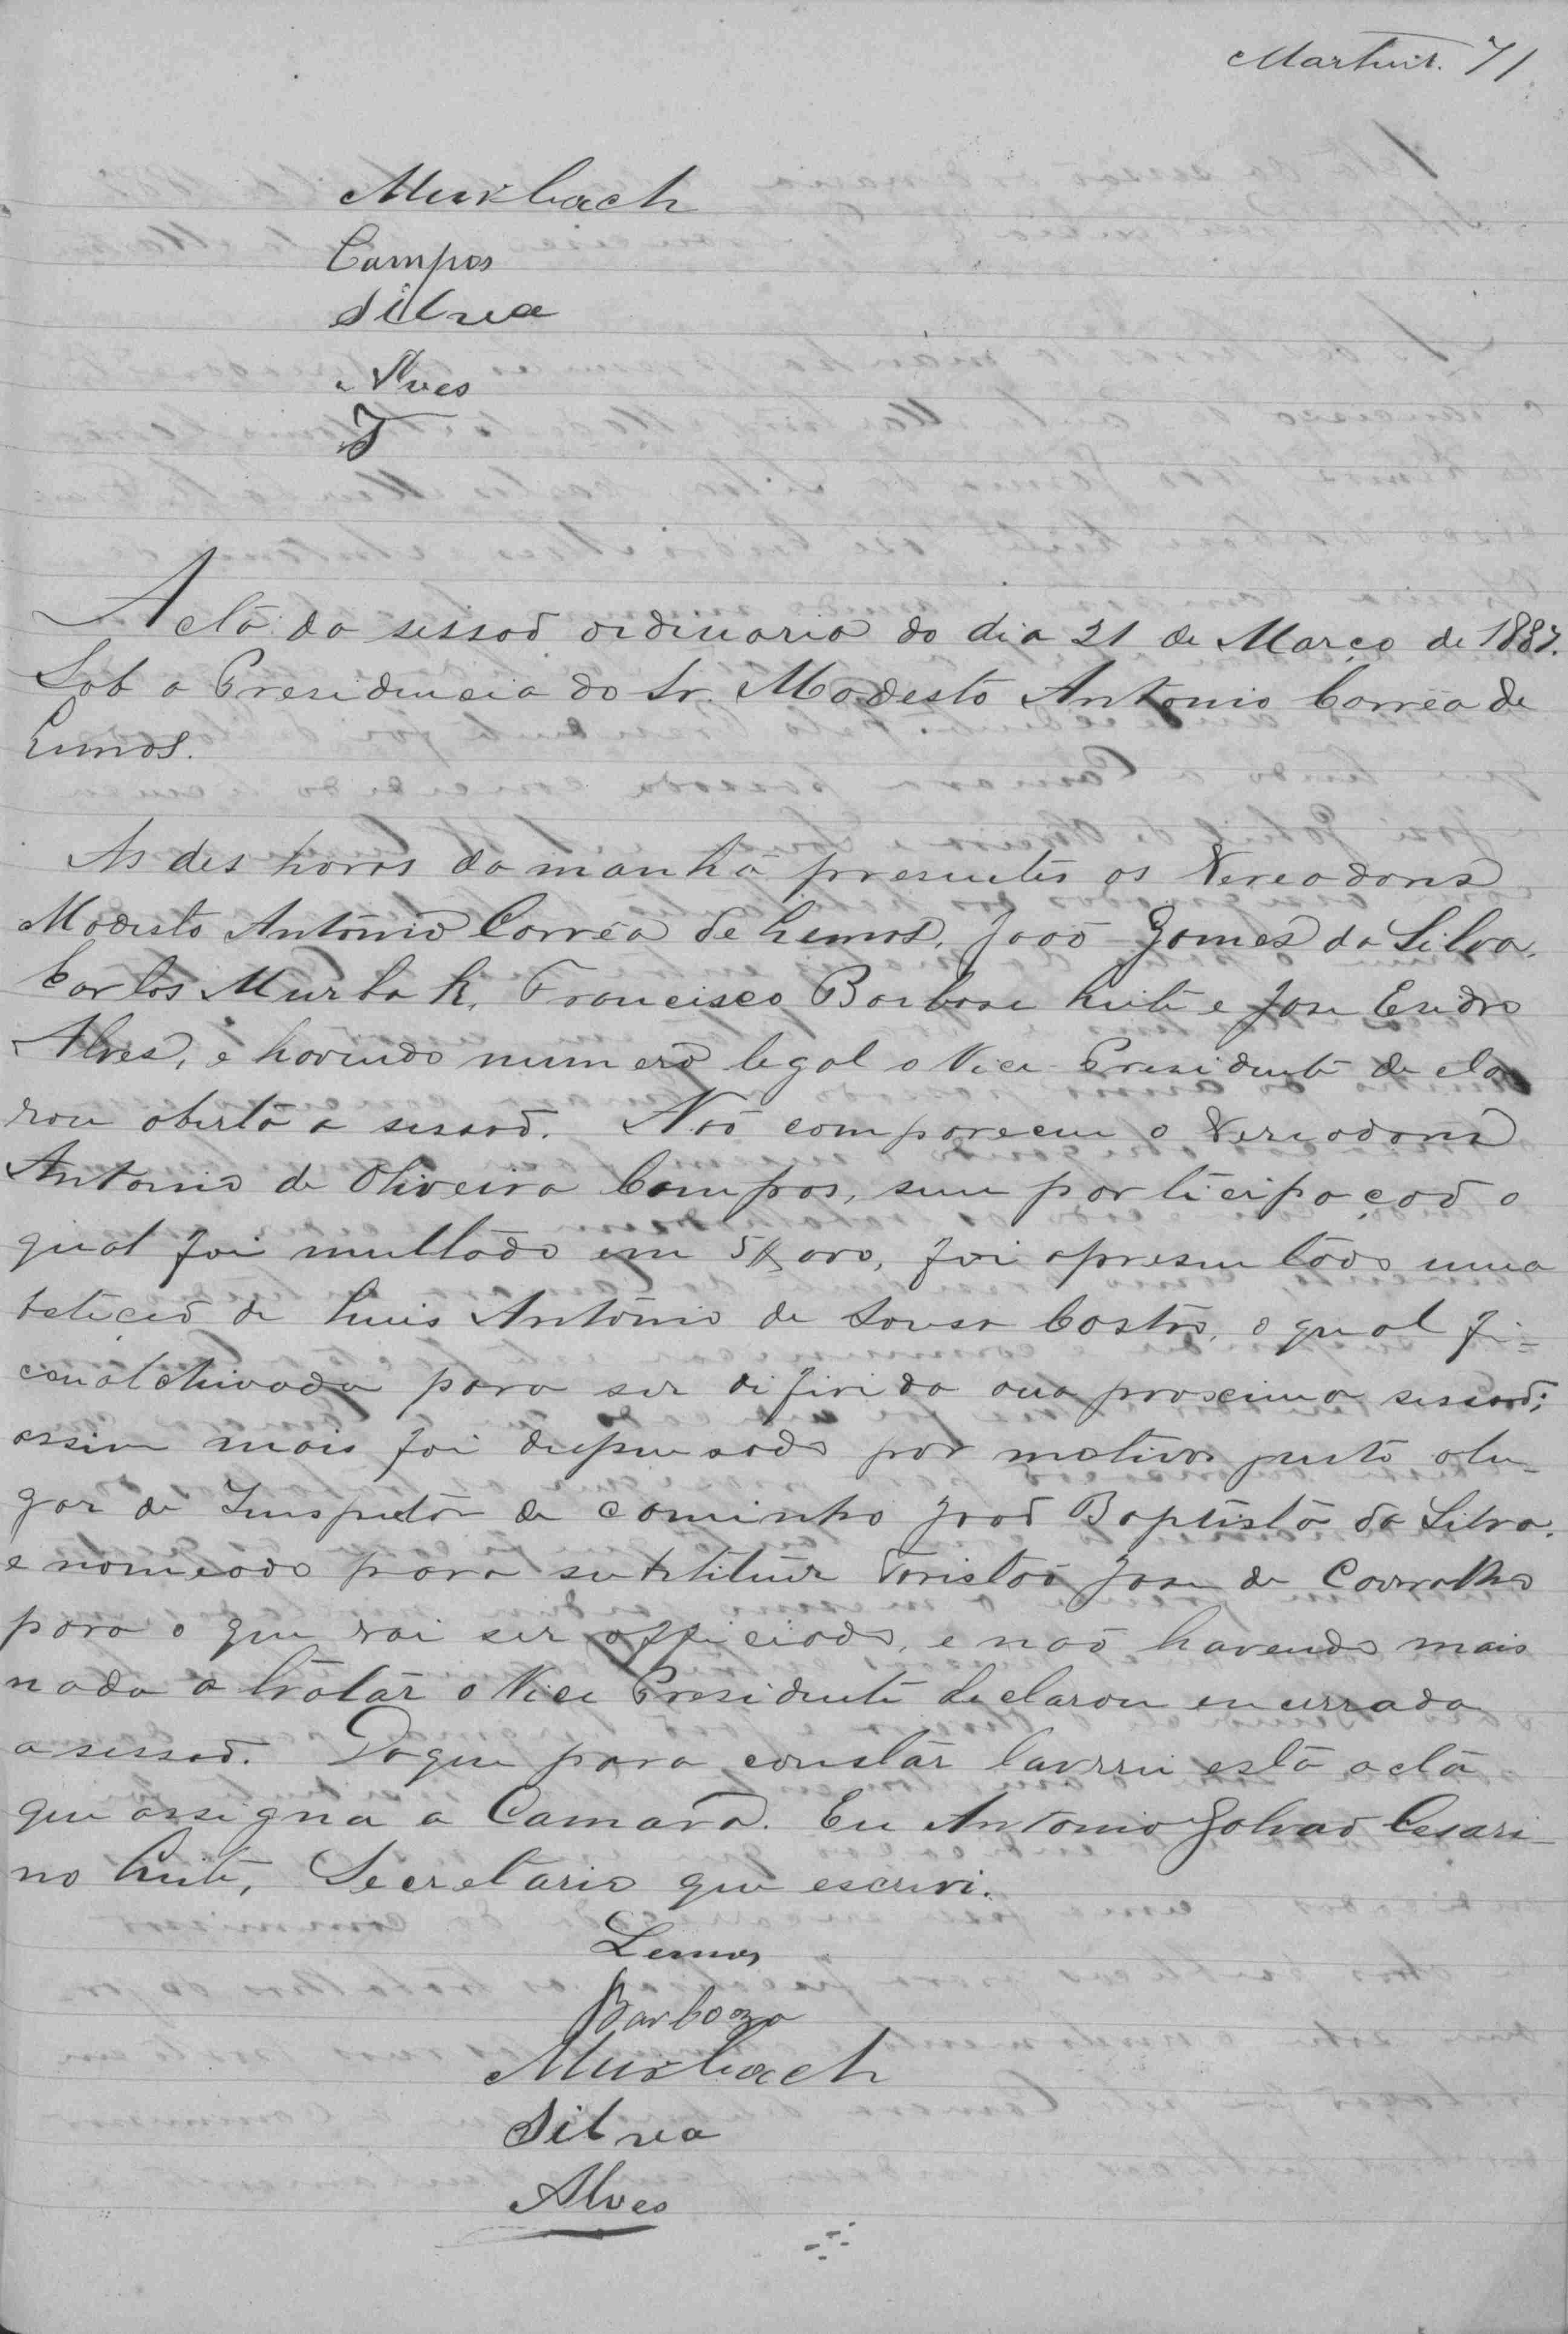 Martins. 71
Murbach
Campos
Silva
Alves
Acta da sessaõ ordinaria do dia 21 de Março de 1887.
Sob a Presidencia do Sr. Modesto Antonio Corrêa de
Lemos.
As des horas da manhã presentes os Vereadores
Modesto Antonio Corrêa de Lemos, João Gomes da Silva,
Carlos Murbak, Francisco Barbosa Leite e Jose Isidro
Alves, e havendo numero legal o Vice Presidente decla
rou aberta a sessaõ. Não compareceu o Vereadores
Antonio de Oliveira Campos, sem participaçaõ o
qual foi multado em 5$000, foi apresentado uma
peticaõ de Luis Antonio de Sousa Castro, o qual fi=
cou archivada para ser difirida na proxima sessaõ;
assim mais foi dispensado por motivo justo o lu-
gar de Inspetor de caminho Joaõ Baptista da Silva.
e nomeado para substituir Tristaõ Jose de Carvalho
para o que vai ser officiado, e naõ havendo mais
nada a tratar o Vice Presidente declarou encerrada
a sessaõ. Do que para constar lavrei esta acta
que assigna a Camara. Eu Antonio Galvaõ Cesari
no Leite, Secretario que escrevi.
Lemos
Barboza
Murbach
Silva
Alves